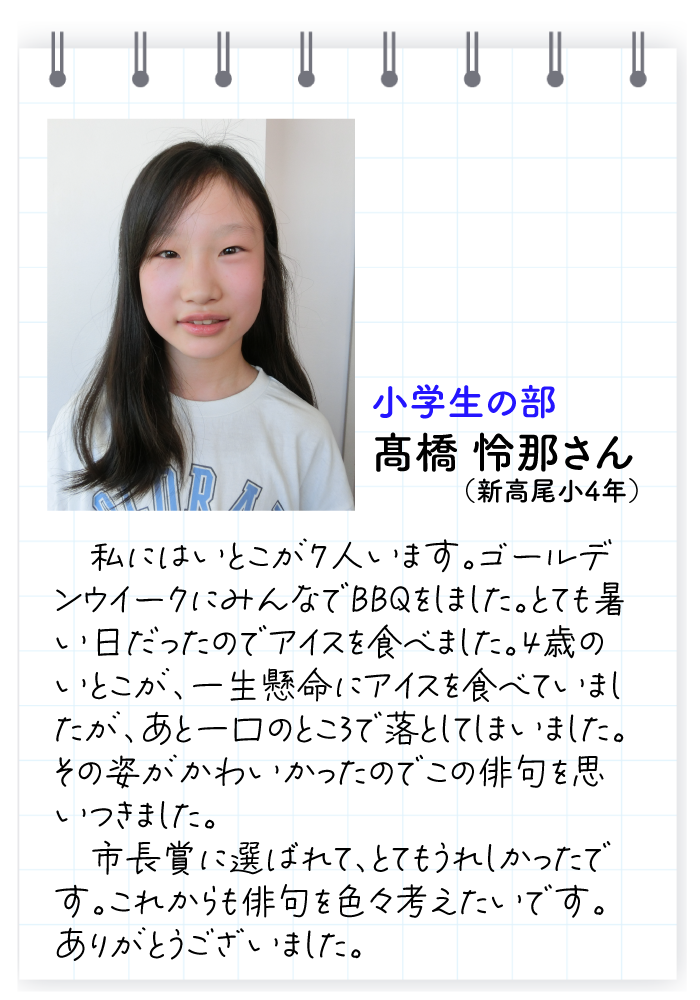 小学生の部
髙橋 怜那さん
（新高尾小4年）
私にはいとこが7人います。ゴールデ
ンウイークにみんなでBBQをしました。とても暑
い日だったのでアイスを食べました。4歳の
いとこが、一生懸命にアイスを食べていまし
たが、あと一口のところで落としてしまいました。
その姿がかわいかったのでこの俳句を思
いつきました。
市長賞に選ばれて、とてもうれしかったで
す。これからも俳句を色々考えたいです。
ありがとうございました。